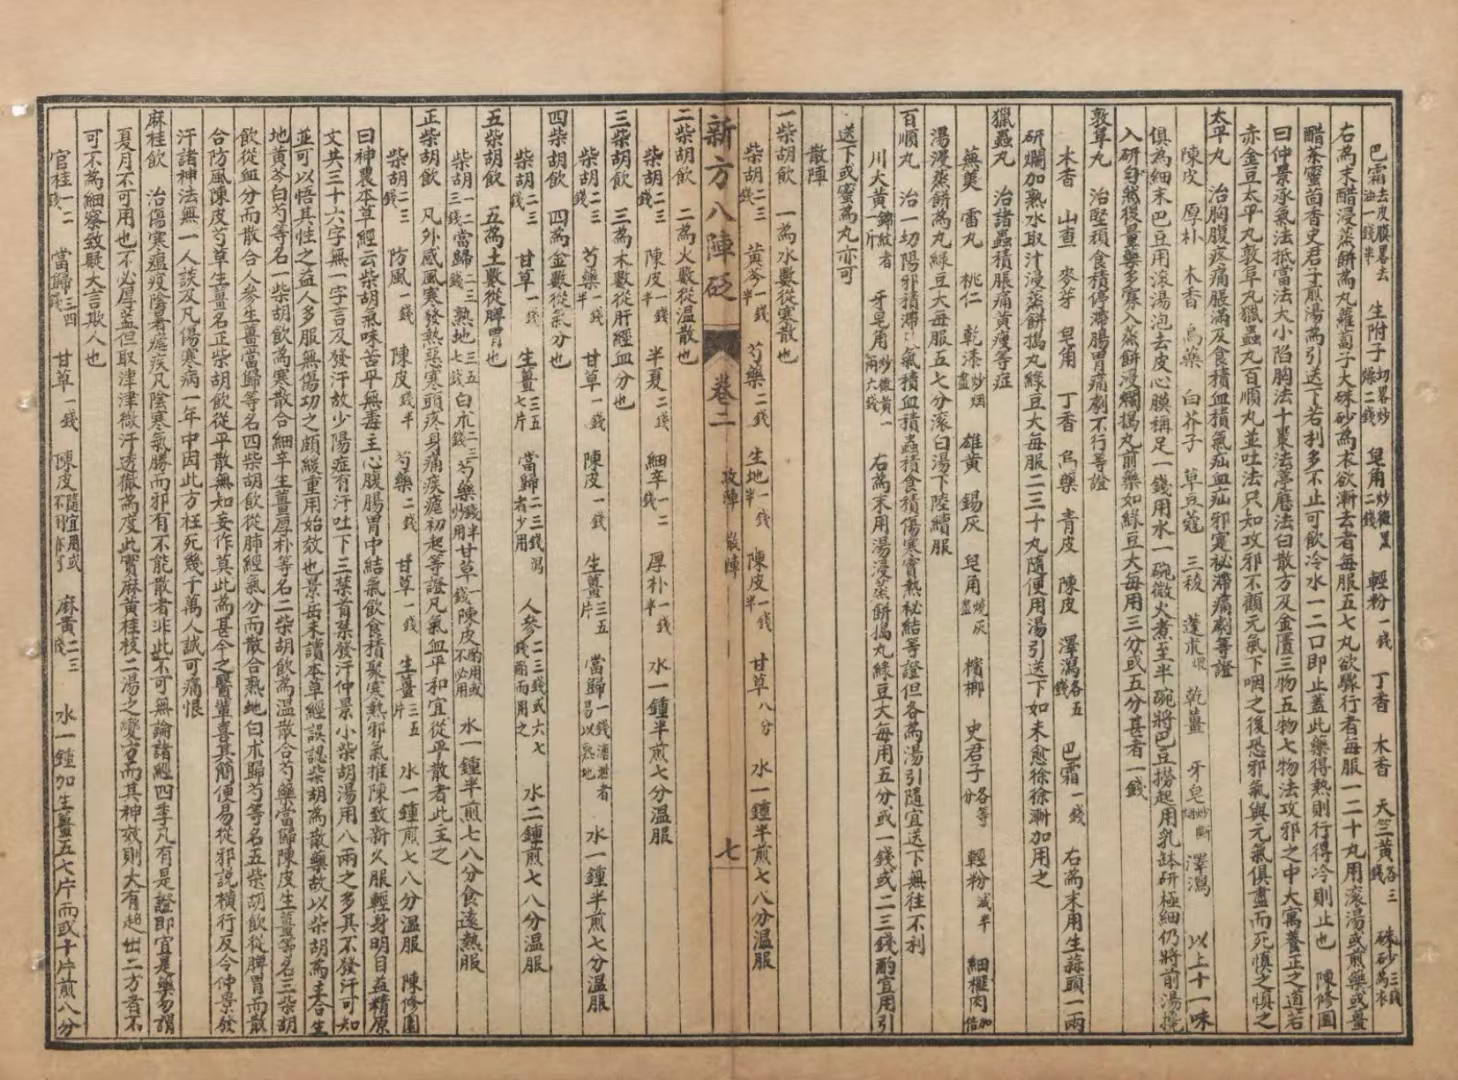 巴霜去皮膜畧去油一錢半 生附子切畧炒二錢 皂角炒微黑二錢 輕粉一錢 丁香 木香 天竺黃各三錢 硃砂三錢為衣
右為末醋浸蒸餅為丸蘿蔔子大硃砂為衣欲漸去者每服五七丸欲驟行者每服一二十丸用滾湯或煎藥或薑
醋茶蜜茴香史君子煎湯為引送下若利多不止可飲冷水一二口即止蓋此藥得熱則行得冷則止也 陳修園
曰仲景承氣法抵當法大小陷胸法十棗法葶藶法白散方及金匱三物五物七物法攻邪之中大寓養正之道若
赤金豆太平丸敦阜丸獵蟲丸百順丸並吐法只知攻邪不顧元氣下咽之後恐邪氣與元氣俱盡而死慎之慎之
太平丸 治胸腹疼痛脹滿及食積血積氣疝血疝邪寔秘滯痛劇等證
陳皮 厚朴 木香 烏藥 白芥子 草豆蔻 三稜 蓬朮煨 乾薑 牙皂炒斷烟 澤瀉 以上十一味
俱為細末巴豆用滾湯泡去皮心膜稱足一錢用水一碗微火煮至半碗將巴豆撈起用乳鉢研極細仍將前湯攙
入研勻然後量藥多寡入蒸餅浸爛搗丸前藥如綠豆大每用三分或五分甚者一錢
敦阜丸 治堅頑食積停滯腸胃痛劇不行等證
木香 山查 麥芽 皂角 丁香 烏藥 青皮 陳皮 澤瀉各五錢 巴霜一錢 右為末用生蒜頭一兩
研爛加熟水取汁浸蒸餅搗丸綠豆大每服二三十丸隨便用湯引送下如未愈徐徐漸加用之
獵蟲丸 治諸蟲積脹痛黃瘦等症
蕪荑 雷丸 桃仁 乾漆炒烟盡 雄黃 錫灰 皂角燒灰 檳榔 史君子各等分 輕粉減半 細榧肉加倍
湯浸蒸餅為丸綠豆大每服五七分滾白湯下陸續服
百順丸 治一切陽邪積滯氣積血積蟲積食積傷寒實熱秘結等證但各為湯引隨宜送下無往不利
川大黃錦紋者一斤 牙皂角炒微黃一兩六錢 右為末用湯浸蒸餅搗丸綠豆大每用五分或一錢或二三錢酌宜用引
送下或蜜為丸亦可
散陣
一柴胡飲 一為水數從寒散也
柴胡二三錢 黃芩一錢半 芍藥二錢 生地一錢半 陳皮一錢半 甘草八分 水一鍾半煎七八分溫服
新方八陣砭 卷二 攻陣 散陣 七
二柴胡飲 二為火數從溫散也
柴胡二三錢 陳皮一錢半 半夏二錢 細辛一二錢 厚朴一錢半 水一鍾半煎七八分溫服
三柴胡飲 三為木數從肝經血分也
柴胡二三錢 芍藥一錢半 甘草一錢 陳皮一錢 生薑三五片 當歸一錢溏泄者易以熟地 水一鍾半煎七分溫服
四柴胡飲 四為金數從氣分也
柴胡二三錢 甘草一錢 生薑三五七片 當歸二三錢瀉者少用 人參二三錢或六七錢酌而用之 水二鍾煎七八分溫服
五柴胡飲 五為土數從脾胃也
柴胡一二三錢當歸二三錢熟地三五七錢白朮二三錢芍藥錢半炒用甘草一錢陳皮酌用或不必用 水一鍾半煎七八分食遠熱服
正柴胡飲 凡外感風寒發熱惡寒頭疼身痛痎瘧初起等證凡氣血平和宜從平散者此主之
柴胡二三錢 防風一錢 陳皮錢半 芍藥二錢 甘草一錢 生薑三五片 水一鍾煎七八分溫服 陳修園
曰神農本草經云柴胡氣味苦平無毒主心腹腸胃中結氣飲食積聚寒熱邪氣推陳致新久服輕身明目益精原
文共三十六字無一字言及發汗故少陽症有汗吐下三禁首禁發汗仲景小柴胡湯用八兩之多其不發汗可知
並可以悟其性之益人多服無傷功之頗緩重用始效也景岳未讀本草經誤認柴胡為散藥故以柴胡為主合生
地黃芩白芍等名一柴胡飲為寒散合細辛生薑厚朴等名二柴胡飲為溫散合芍藥當歸陳皮生薑等名三柴胡
飲從血分而散合人參生薑當歸等名四柴胡飲從肺經氣分而散合熟地白朮歸芍等名五柴胡飲從脾胃而散
合防風陳皮芍草生薑名正柴胡飲從平散無知妄作莫此為甚今之醫輩喜其簡便易從邪說橫行反令仲景發
汗諸神法無一人談及凡傷寒病一年中因此方枉死幾千萬人誠可痛恨
麻桂飲 治傷寒瘟疫陰暑瘧疾凡陰寒氣勝而邪有不能散者非此不可無論諸經四季凡有是證即宜是藥勿謂
夏月不可用也不必厚蓋但取津津微汗透徹為度此實麻黃桂枝二湯之變方而其神效則大有超出二方者不
可不為細察致疑大言欺人也
官桂一二錢 當歸三四錢 甘草一錢 陳皮隨宜用或不用亦可 麻黃二三錢 水一鍾加生薑五七片而或十片煎八分